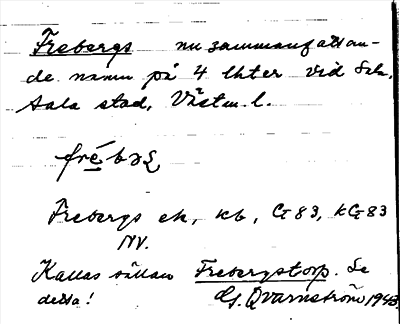 Frebergs nu sammanfattan-
de namn på 4 lhter vid Sala,
Sala stad, Västm. l.
fré̱bəʂ
Frebergs ek, kb, G 83, kG 83
NV.
Kallas sällan Frebergstorp. Se
detta! G. Qvarnström 1943